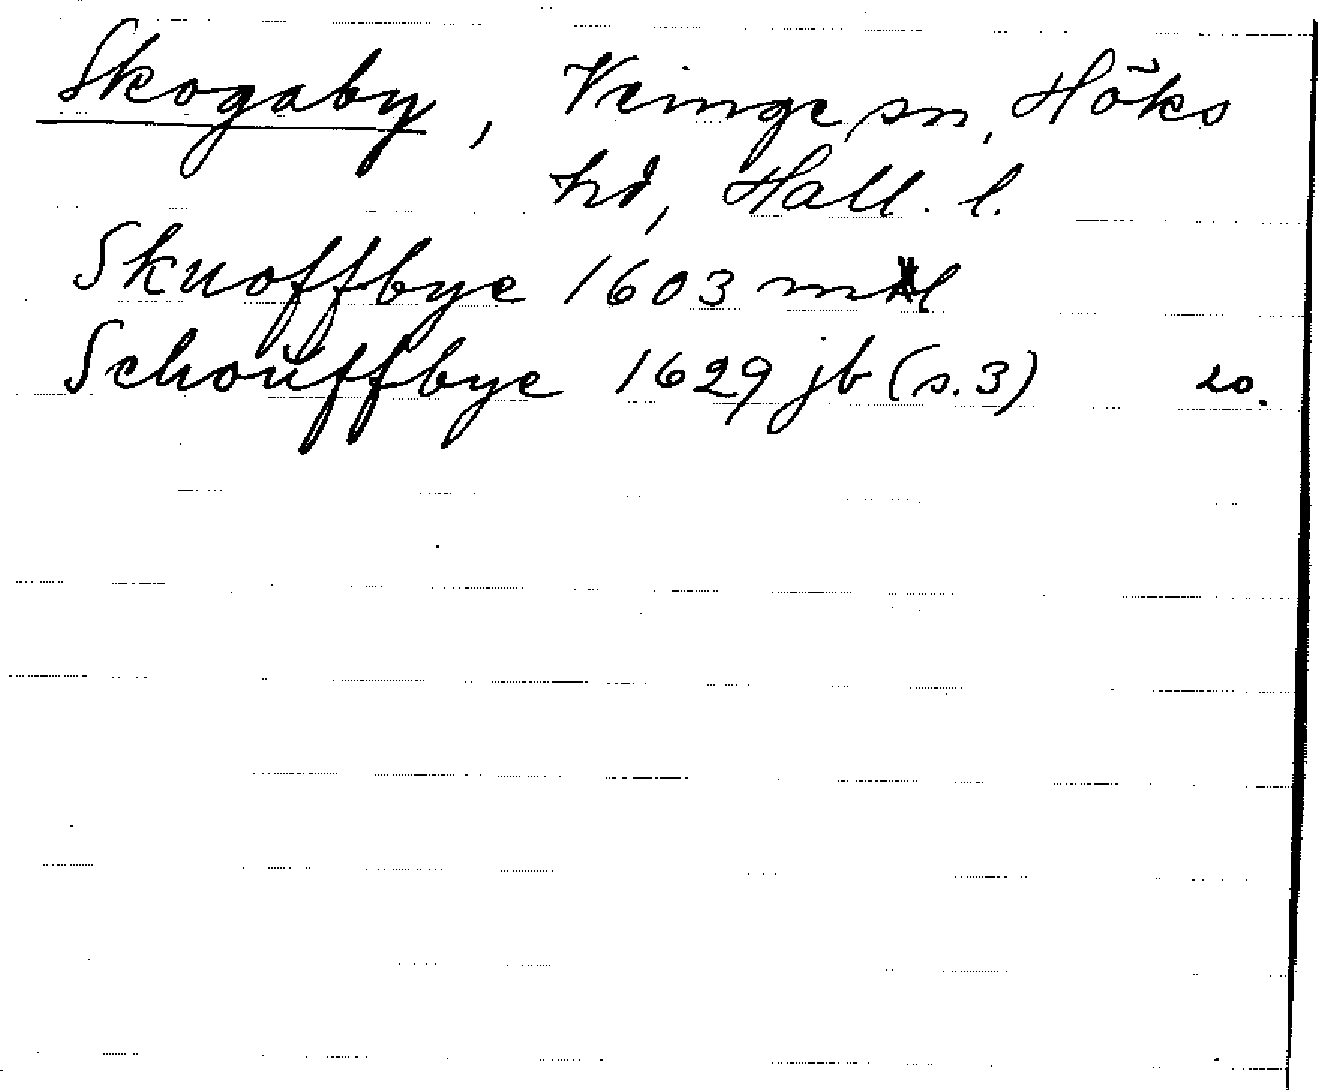 Skogaby, Veinge sn, Höks
hd, Hall. l.
Skuoffbye 1603 mtl
Schoüffbye 1629 jb (s. 3) so.